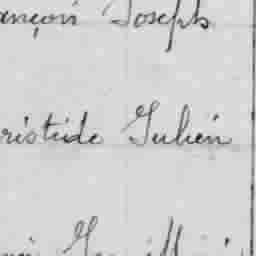 ançois Joseph
ristide Julien